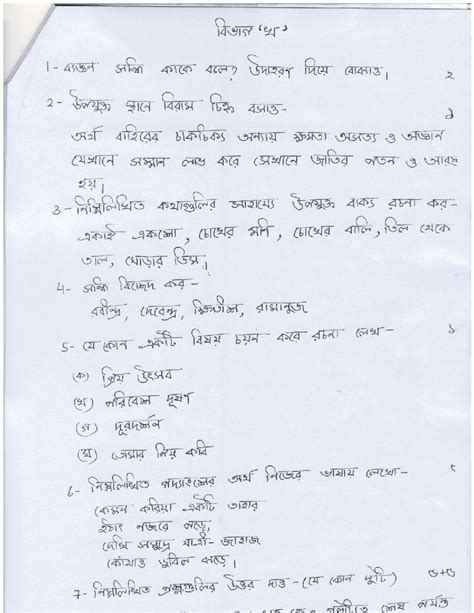 বিভাগ 'খ'
1 - ব্যঞ্জন সন্ধি কাকে বলে? উদাহরণ দিয়ে বোঝাও। ২
2 - উপযুক্ত স্থানে বিরাম চিহ্ন বসাও-
অর্থ বাহিরের চাকচিক্য অন্যায় ক্ষমতা অসত্য ও অজ্ঞান
যেখানে সম্মান লাভ করে সেখানে জাতির পতন ও আরম্ভ
হয়।
3 - নিম্নলিখিত কথাগুলির সাহায্যে উপযুক্ত বাক্য রচনা কর-
একাই একশো, চোখের মণি, চোখের বালি, তিল থেকে
তাল, ঘোড়ার ডিম।
4 - সন্ধি বিচ্ছেদ কর -
রবীন্দ্র, দেবেন্দ্র, ক্ষিতীশ, রামানুজ
5 - যে কোন একটি বিষয় চয়ন করে রচনা লেখ -
(ক) প্রিয় উৎসব
(খ) পরিবেশ দূষণ
(গ) দূরদর্শন
(ঘ) তোমার প্রিয় কবি
6 - নিম্নলিখিত পদ্যাংশের অর্থ নিজের ভাষায় লেখো -
কেমন করিয়া একটি তাহার
হঠাৎ নজরে পড়ে,
দেখি সমুদ্র যাত্রী - জাহাজ
কোথাও ডুবিল ঝড়ে।
7 - নিম্নলিখিত প্রশ্নগুলির উত্তর দাও - (যে কোন দুটি) ৩+৩
শেষ পর্যন্ত